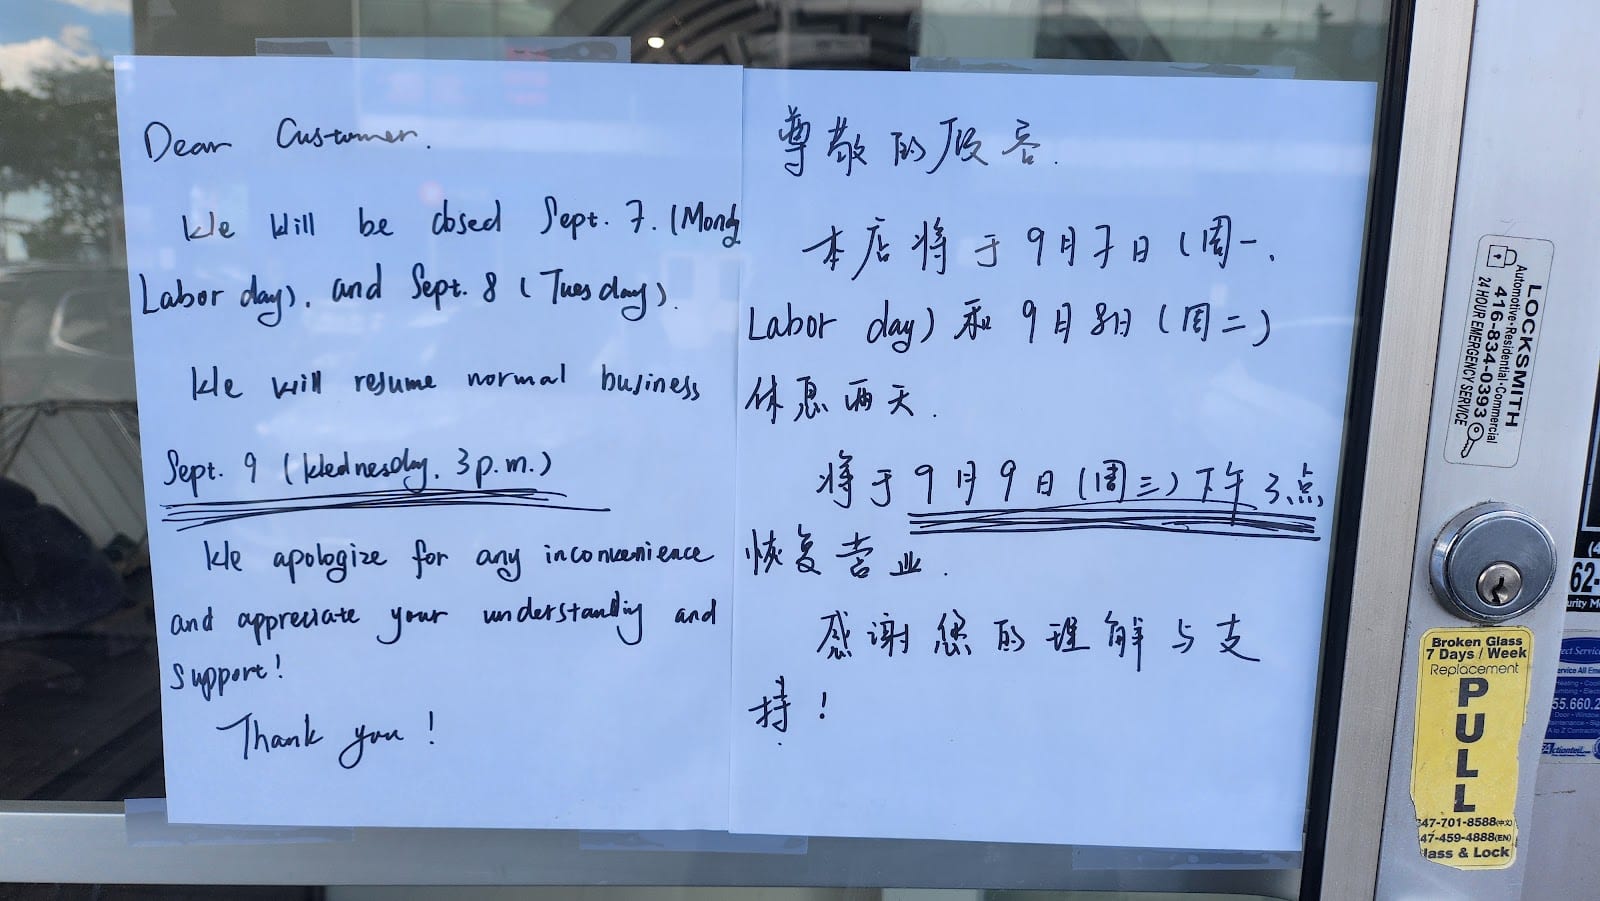 Dear Customer.
We will be closed Sept. 7. (Monday
Labor day), and Sept. 8 (Tuesday).
We will resume normal business
Sept. 9 (Wednesday, 3 p.m.)
We apologize for any inconvenience
and appreciate your understanding and
support!
Thank you!
尊敬的顾客.
本店将于9月7日(周一,
Labor day)和9月8日(周二)
休息两天.
将于9月9日(周三)下午3点
恢复营业.
感谢您的理解与支
持!
LOCKSMITH
Automotive•Residential•Commercial
416-834-0393
24 HOUR EMERGENCY SERVICE
Broken Glass
7 Days / Week
Replacement
PULL
47-701-8588(中文)
47-459-4888(EN)
lass & Lock
62-
55.660.2